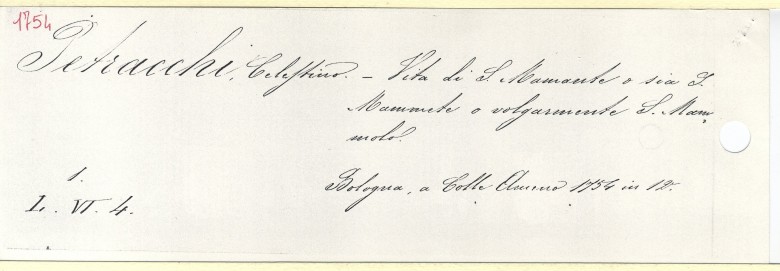 1754
Petracchi, Celestino. – Vita di S. Mamante o sia S.
Mammete o volgarmente S. Mam-
molo.
Bologna, a Colle Ameno 1754 in 12º.
1.
L. VI. 4.